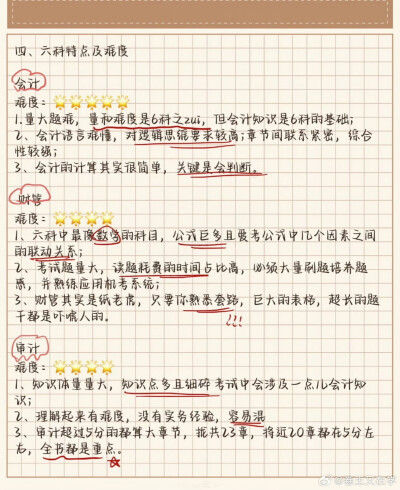 四、六科特点及难度
会计
难度：🌟🌟🌟🌟🌟
1.量大题难，量和难度是6科之zui，但会计知识是6科的基础；
2、会计语言难懂，对逻辑思维要求较高；章节间联系紧密，综合
性较强；
3、会计的计算其实很简单，关键是会判断。
财管
难度：🌟🌟🌟🌟
1、六科中最像数学的科目，公式巨多且要考公式中几个因素之间
的联动关系；
2、考试题量大，读题耗费的时间占比高，必须大量刷题培养题
感，并熟练应用机考系统；
3、财管其实是纸老虎，只要你熟悉套路，巨大的表格，超长的题
干都是吓唬人的。
!!!
审计
难度：🌟🌟🌟🌟
1、知识体量量大，知识点多且细碎考试中会涉及一点儿会计知
识；
2、理解起来有难度，没有实务经验，容易混
3、审计超过5分的都算大章节，拢共23章，将近20章都在5分左
右，全书都是重点。